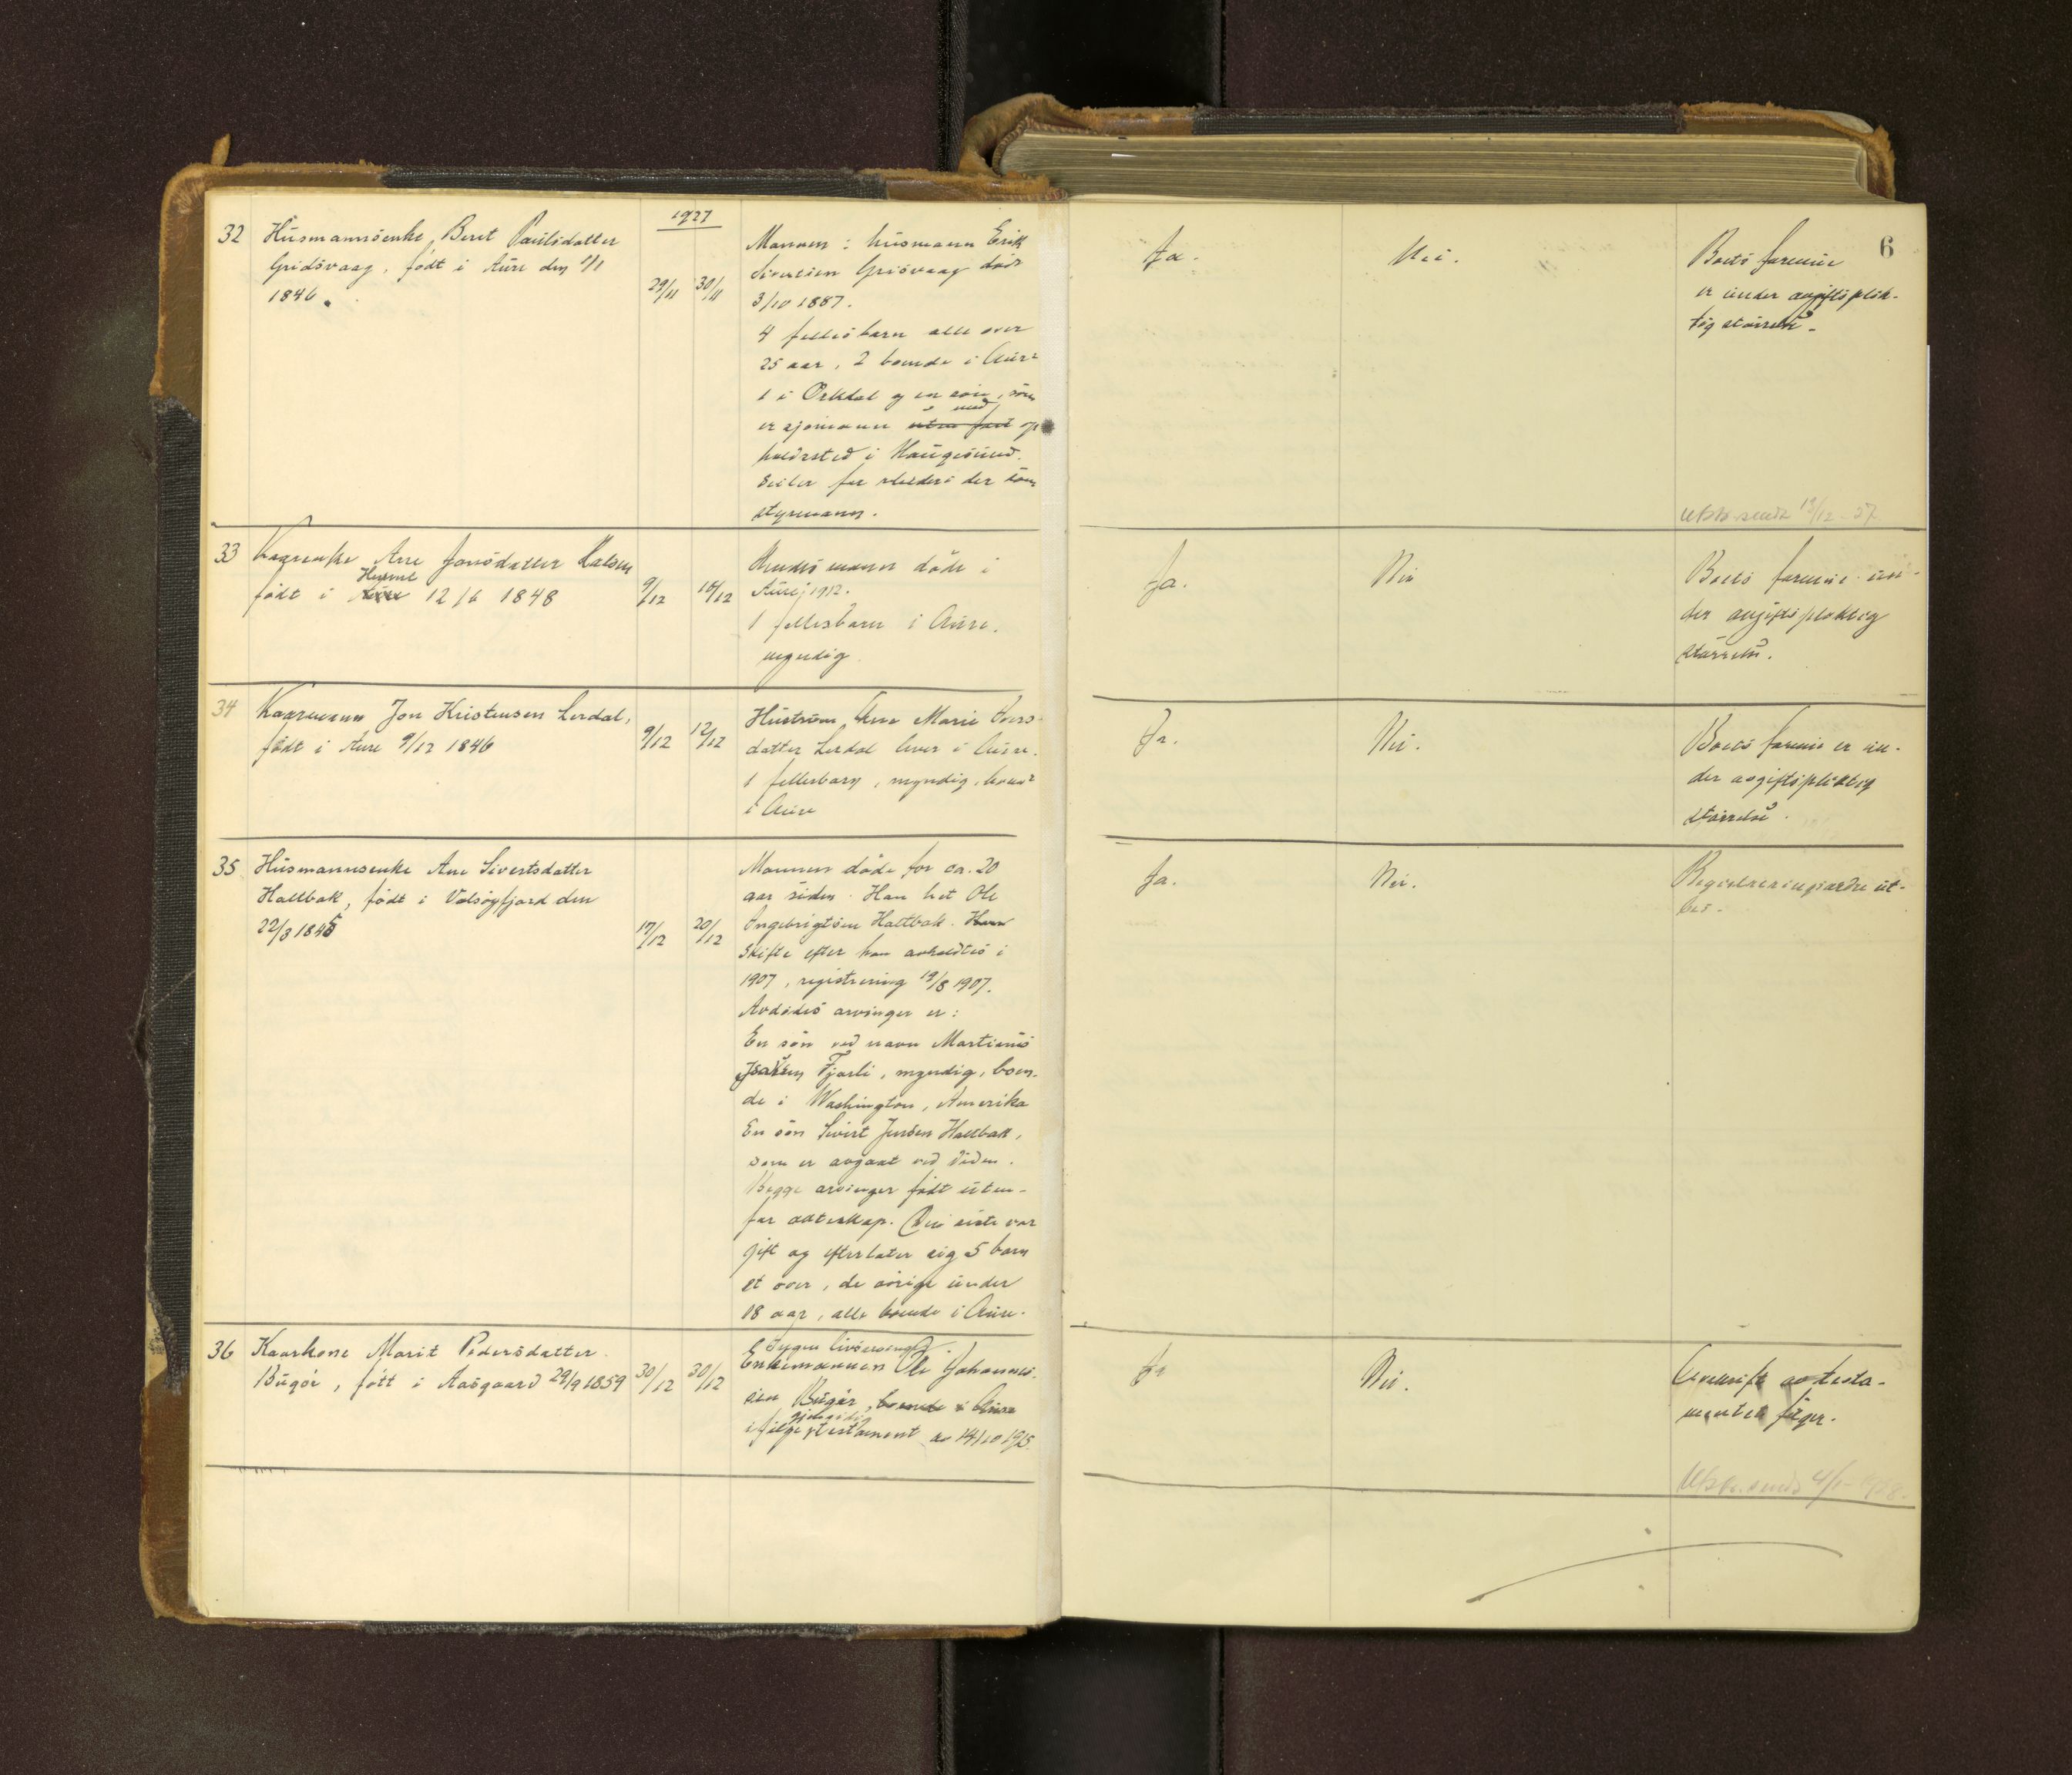 6
1927
32 Husmannsenke Beret Paulsdatter
Gridsvaag, født i Aure den 1/1
1846.
29/11 30/11
Mannen: husmann Erik
Sivertsen Grisvaag døde
3/10 1887.
4 fellesbarn alle over
25 aar, 2 boende i Aure
1 i Orkdal og en søn, som
er sjømann med op
holdssted i Haugesund.
Seiler for rhederi der som
styrmann.
Ja.
Nei.
Boets formue
er under avgiftsplik-
tig størrelse.
33 Kaarenke Ane Jonsdatter
født i Hevne 12/6 1848
9/12 10/12
Hendes mann døde i
Aure i 1912.
1 fellesbarn i Aure.
myndig.
Ja.
Nei
Boets formue un-
der avgiftspliktig
størrelse.
34 Kaarmann Jon Kristensen Lerdal,
født i Aure 9/12 1846
9/12 12/12
Hustruen Ane Marie
datter Lerdal lever i Aure.
1 fellesbarn, myndig, boende
i Aure
Ja.
Nei.
Boets formue er un-
der avgiftspliktig
størrelse.
35 Husmannsenke Ane Sivertsdatter
Haltbak, født i Valsøyfjord den
22/3 1845
17/12 20/12
Mannen døde for ca. 20
aar siden. Han het Ole
Ingebrigtsen Haltbak.
Skifte efter han avholdtes i
1907, registrering 19/8 1907.
Avdødes arvinger er:
En søn ved navn Martinus
Fjærli, myndig, boen-
de i Washington, Amerika
En søn Sivert Jensen Haltbak,
som er avgaat ved døden.
Begge arvinger født uten-
for ækteskap. Den siste var
gift og efterlater sig 5 barn
et over, de øvrige under
18 aar, alle boende i Aure.
Ja.
Nei.
Registreringsordre ut-
36 Kaarkone Marit Pedersdatter
Bugør, født i Aasgaard 29/9 1859
30/12 30/12
Ingen livsarvinger
Enkemannen Ole Johannes-
sen Bugør, boende i Aure
ifølge gjensidig testament av 14/10 1915
Ja
Nei.
Avskrift av testa-
mentet følger.